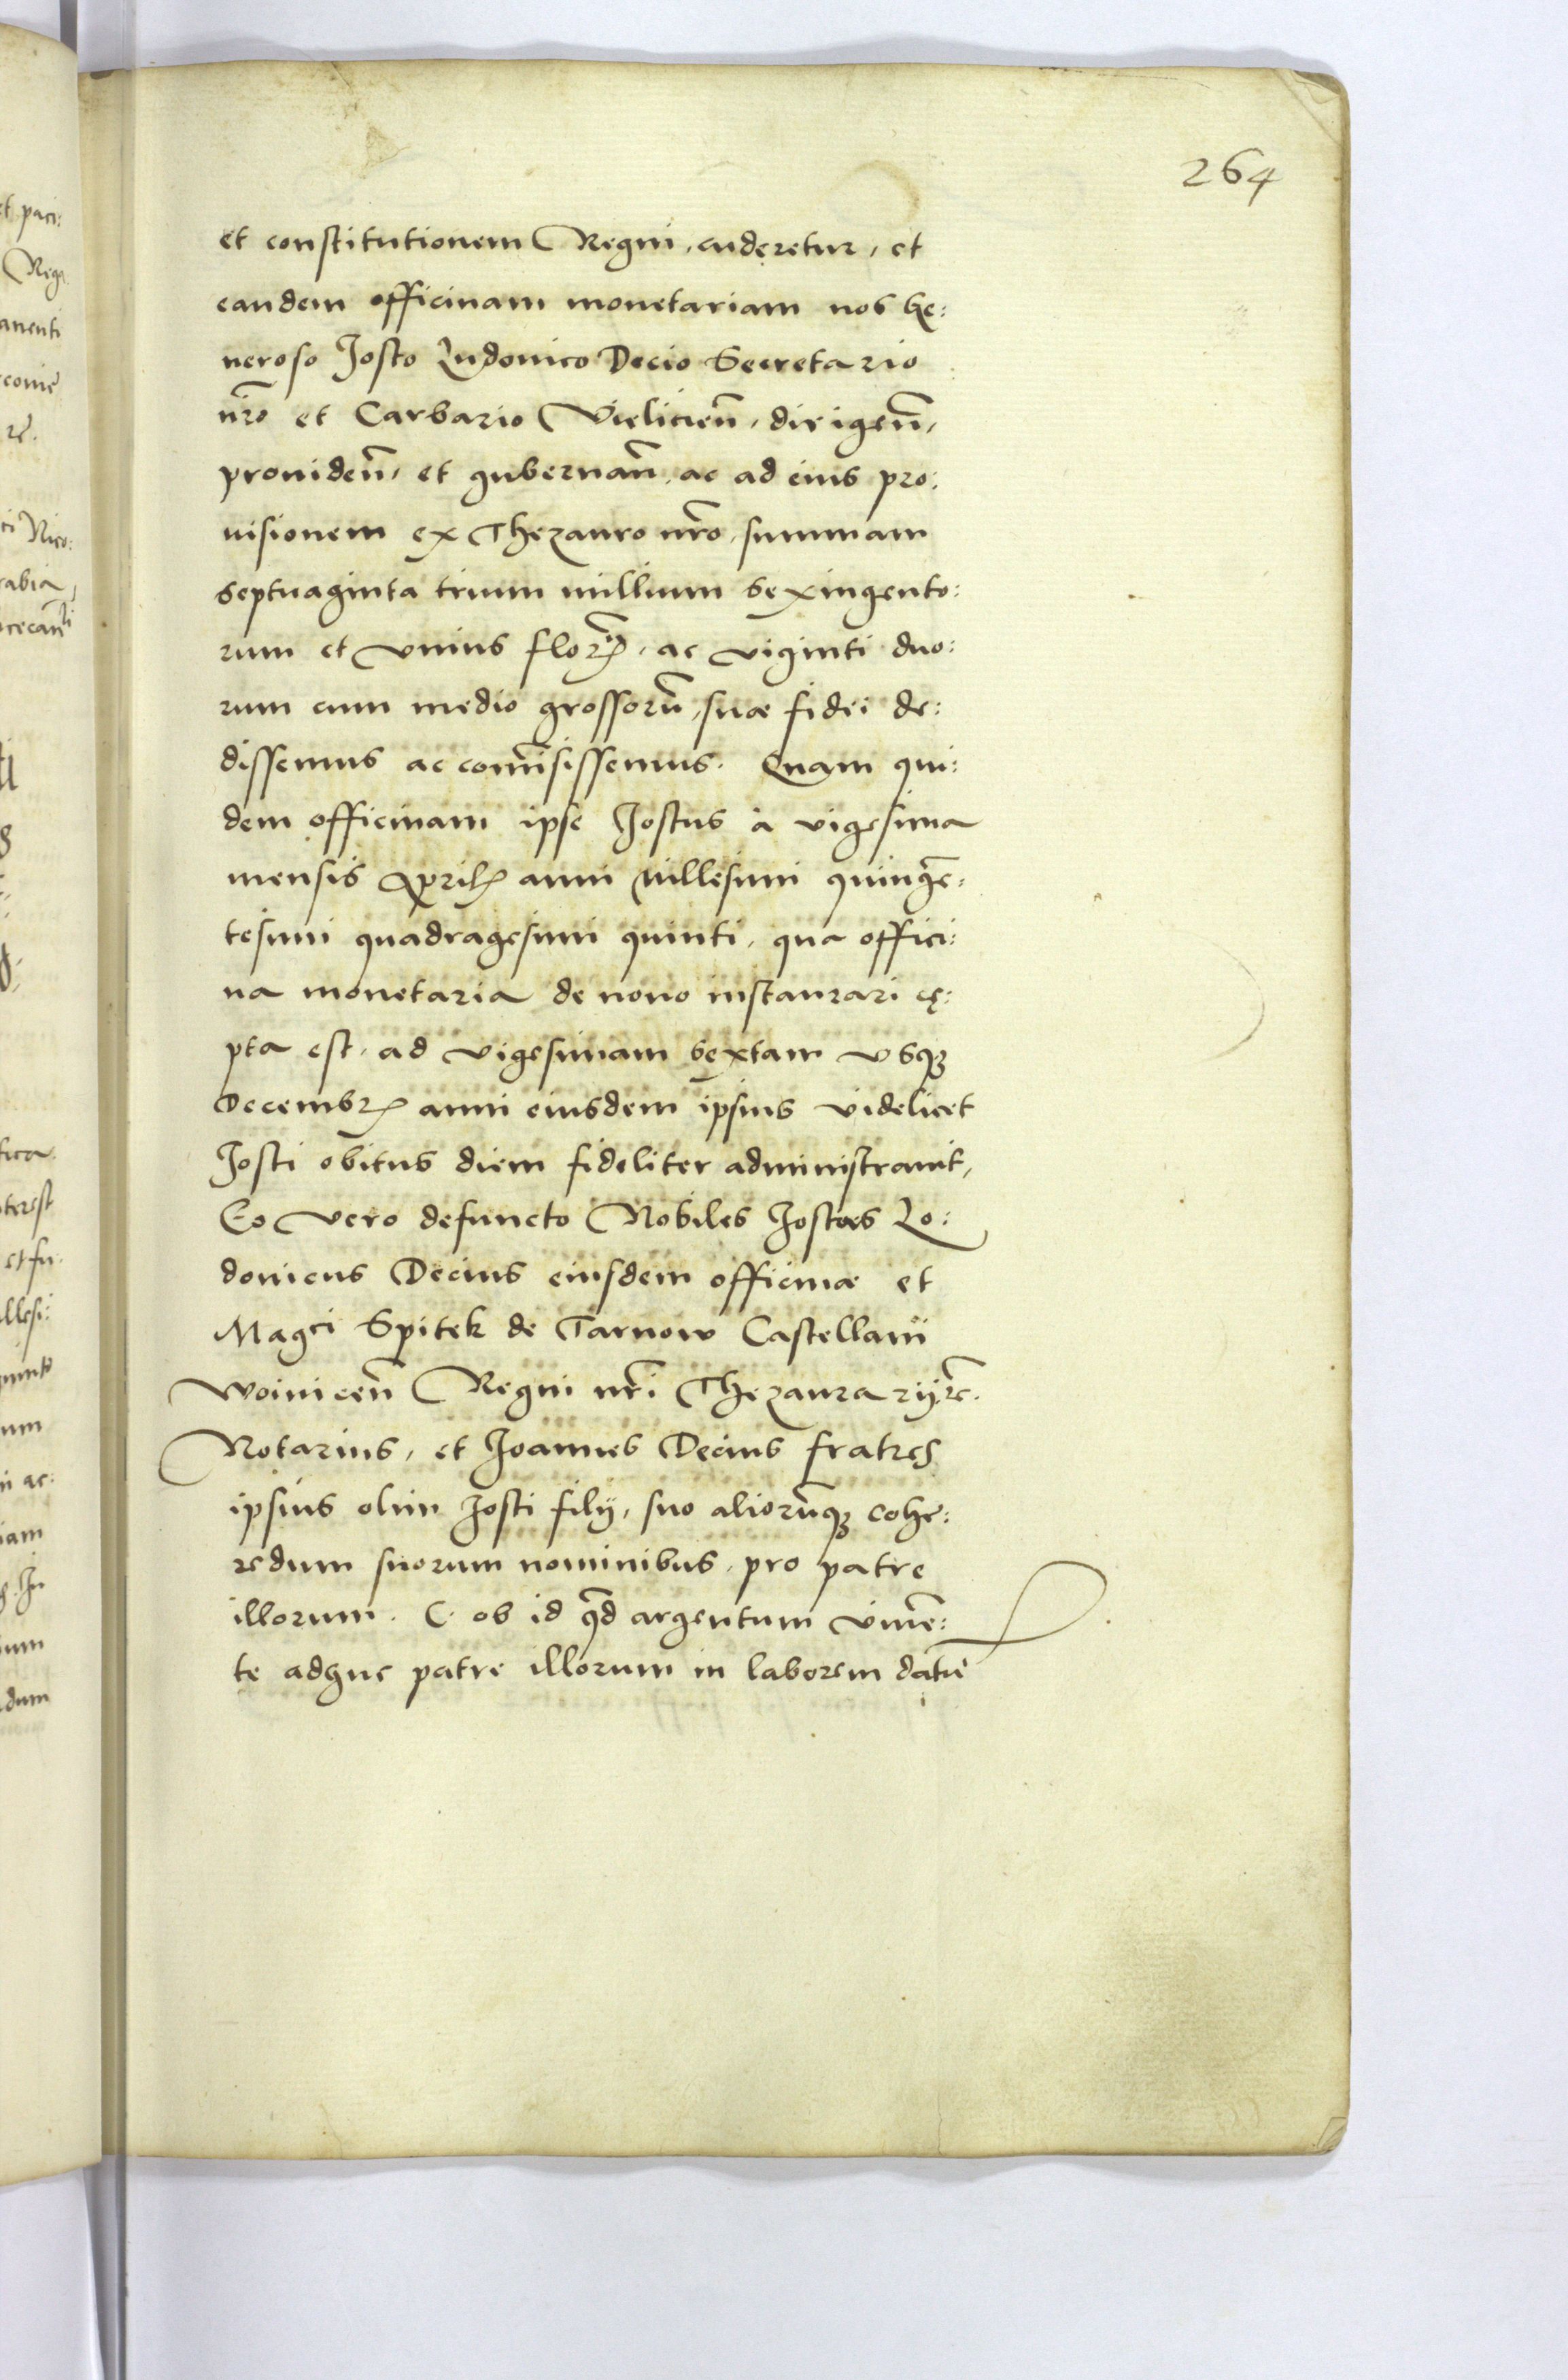 264
et constitutionem Regni, cuderetur, et
eandem officinam monetariam nos Ge:
neroso Josto Ludouico Decio Secretario
nr̃o et Carbario Vielicień, dirigeñ,
prouideñ, et gubernañ, ac ad eius pro:
uisionem ex Thezauro nr̃o, summam
septuaginta trium millium sexingento:
rum et vnius floreñ, ac viginti duo:
rum cum medio grossorũ, suæ fidei de:
dissemus ac com̃isissemus. Quam qui:
dem officinam ipse Jostus à vigesima
mensis Aprilis anni millesimi quingẽ:
tesimi quadragesimi quinti, qua offici:
na monetaria de nouo instaurari cę:
pta est, ad vigesimam sextam vsq₃
Decembris anni eiusdem ipsius videlicet
Josti obitus diem fideliter administrauit,
Eo vero defuncto Nobiles Jostus Lo:
douicus Decius eiusdem officinæ et
Magci Spitek de Tarnow Castellani
Woiniceñ Regni nr̃i Thezaurarij etc.
Notarius, et Joannes Decius fratres
ipsius olim Josti filij, suo aliorũq₃ cohe:
redum suorum nominibus, pro patre
illorum. C. ob id qd̃ argentum viuẽ:
te adhuc patre illorum in laborem datũ